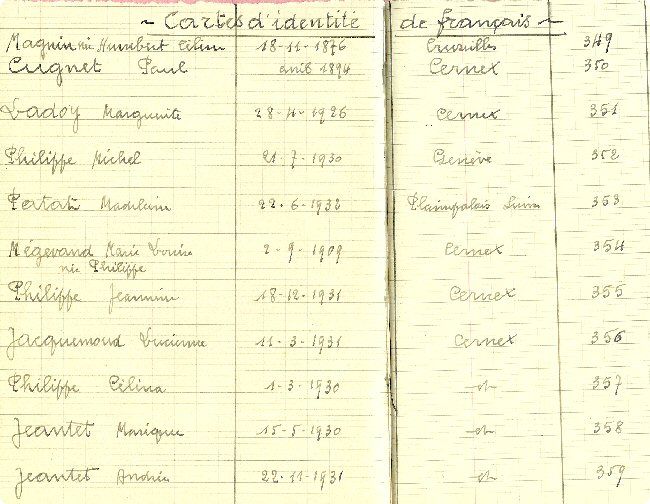 ~ Cartes d'identité de français ~
Magnin née Humbert Célina 18-11-1876 Cruseilles 349
Cugnet Paul 1894 Cernex 350
Dadoy Marguerite 28-4-1926 Cernex 351
Philippe Michel 21-7-1930 Genève 352
Madeleine 22-6-1932 Plainpalais Suisse 353
Mégevand Marie Louise 2-9-1909 Cernex 354
née Philippe
Philippe Jeannine 18-12-1931 Cernex 355
Jacquemoud Lucienne 11-3-1931 Cernex 356
Philippe Célina 1-3-1930 357
Jeantet 15-5-1930 358
Jeantet Andrée 22-11-1931 359